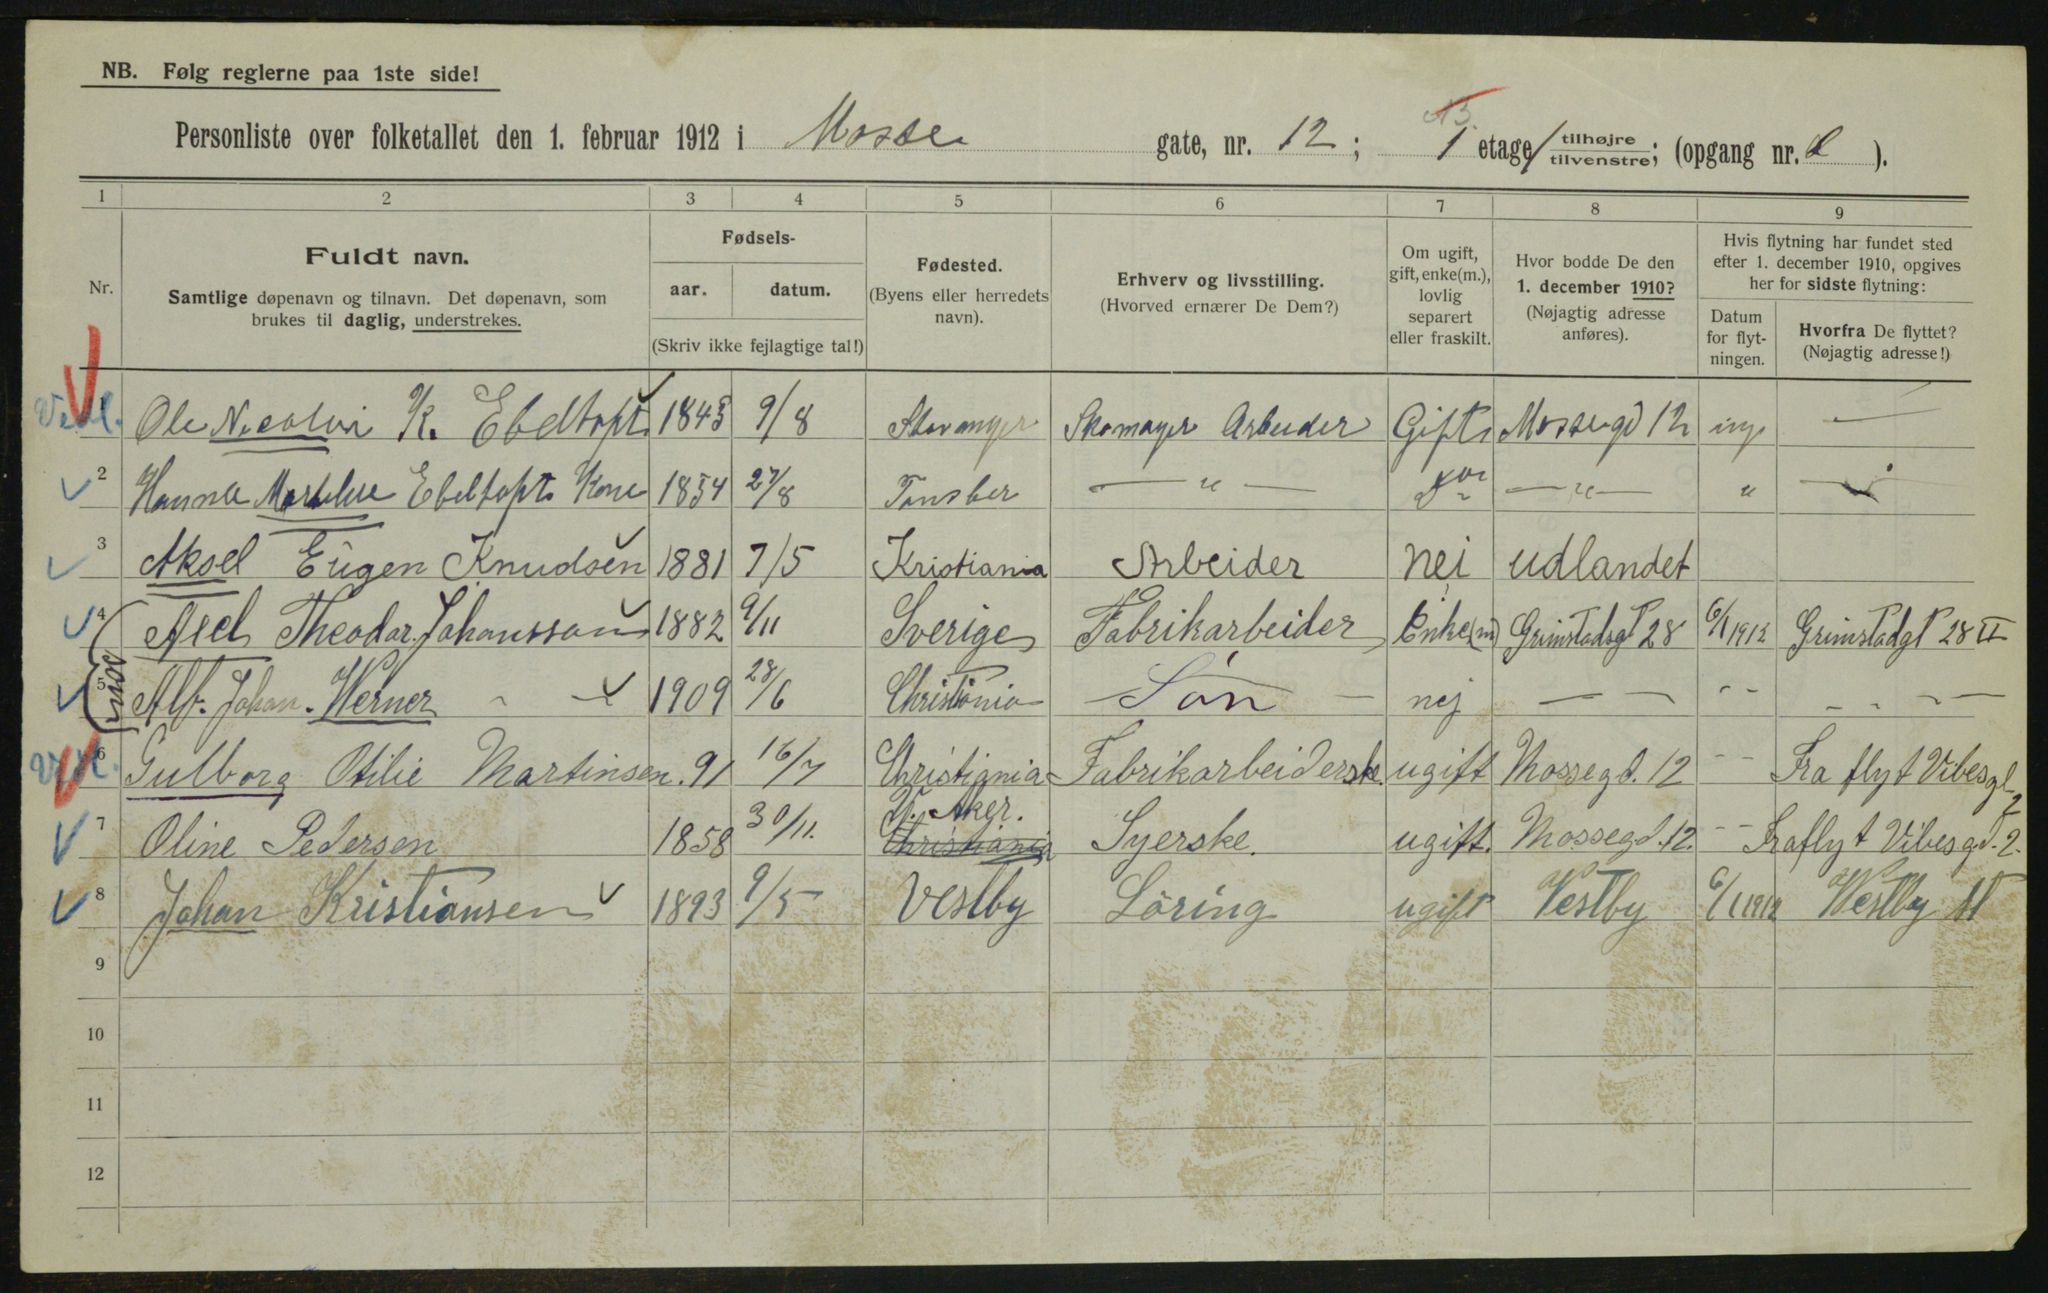 NB. Følg reglerne paa 1ste side!
Personliste over folketallet den 1. februar 1912 i Mosse gate, nr. 12; 1 etage/ tilhøjre/tilvenstre; (opgang nr. ).
1 2 3 4 5 6 7 8 9
Nr.
Fuldt navn.
Samtlige døpenavn og tilnavn. Det døpenavn, som
brukes til daglig, understrekes.
Fødsels-
aar. datum.
(Skriv ikke fejlagtige tal!)
Fødested.
(Byens eller herredets
navn).
Erhverv og livsstilling.
(Hvorved ernærer De Dem?)
Om ugift,
gift, enke(m.),
lovlig
separert
eller fraskilt.
Hvor bodde De den
1. december 1910?
(Nøjagtig adresse
anføres).
Hvis flytning har fundet sted
efter 1. december 1910, opgives
her for sidste flytning:
Datum
for flyt-
ningen.
Hvorfra De flyttet?
(Nøjagtig adresse!)
Ole Nicolai K. Ebeltoft 1843 9/8 Stavanger Skomager Arbeider Gift Mossegd 12 —
2 Hanna Ebeltoft Kone 1854 27/8 Tonsber — " — — " — " —
3 Aksel Eugen Knudsen 1881 7/5 Kristiania Arbeider nei udlandet
4 Axel Theodor Johansson 1882 9/11 Sverige Fabrikarbeider Enke(m) Grimstadgt 28 6/1 1912 Grimstadgt 28 II
5 Alf. Johan. Werner - - 1909 28/6 Christiania — Sön — nej — — - - - - — —
6 Gulborg Otilie Martinsen. 91 16/7 Christiania Fabrikarbeiderske ugift Mossegd. 12 - - Fra flyt Vibesgt 2
7 Oline Pedersen 1858 30/11. V. Aker. Christiania Syerske. ugift. Mossegd. 12. - - Fraflyt Vibesgd. 2.
8 Johan Kristiansen 1893 9/5 Vestby Löring ugift Vestby 6/1 1912 Vestby st
9
10
11
12